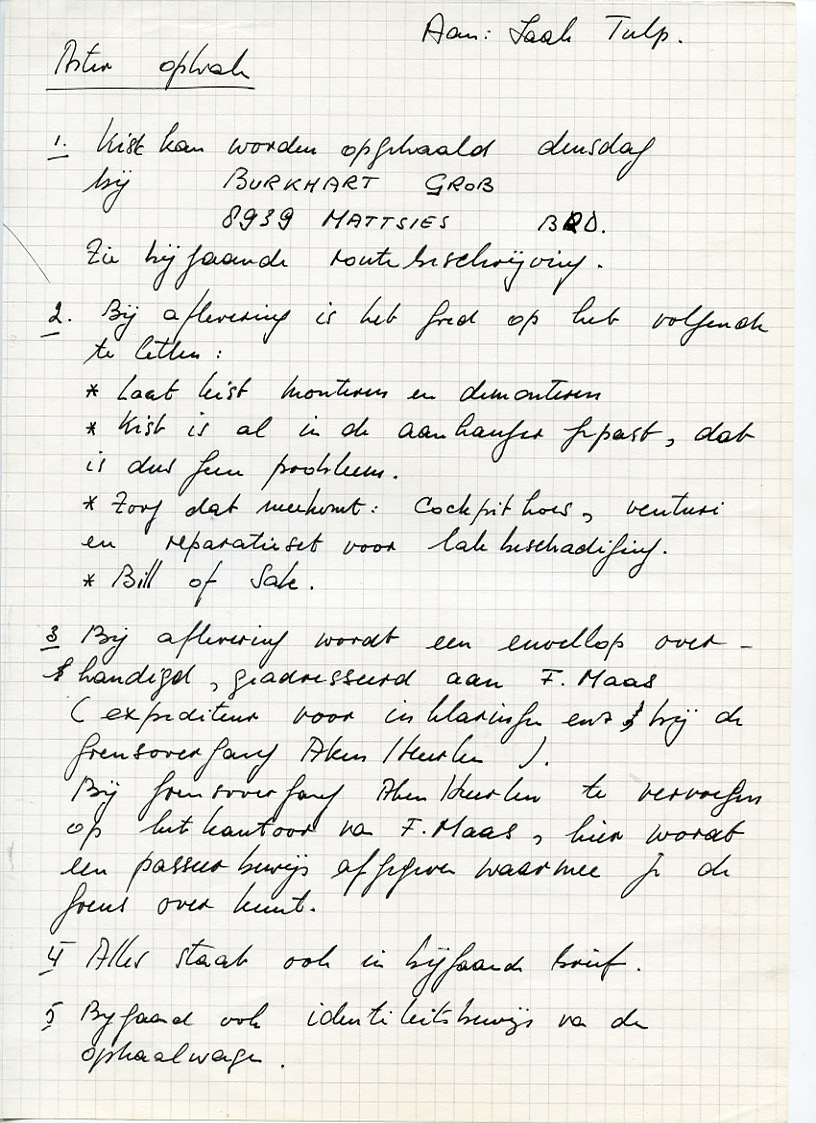 Aan: Jaak Tulp.
Aster ophalen
1. Kist kan worden opgehaald dinsdag
bij BURKHART GROB
8939 MATTSIES BRD.
Zie bijgaande routebeschrijving.
2. Bij aflevering is het goed op het volgende
te letten:
* Laat kist monteren en demonteren
* Kist is al in de aanhanger gepast, dat
is dus geen probleem.
* Zorg dat meekomt: Cockpithoes, venturi
en reparatieset voor lakbeschadiging.
* Bill of Sale.
3 Bij aflevering wordt een envellop over-
handigd, geadresseerd aan F. Maas
(expediteur voor inklaringen enz bij de
grensovergang Aken/Heerlen).
Bij grensovergang Aken/Heerlen te vervoegen
op het kantoor van F. Maas, hier wordt
een passeerbewijs afgegeven waarmee je de
grens over kunt.
4 Alles staat ook in bijgaande brief.
5 Bijgaand ook identiteitsbewijs van de
ophaalwagen.